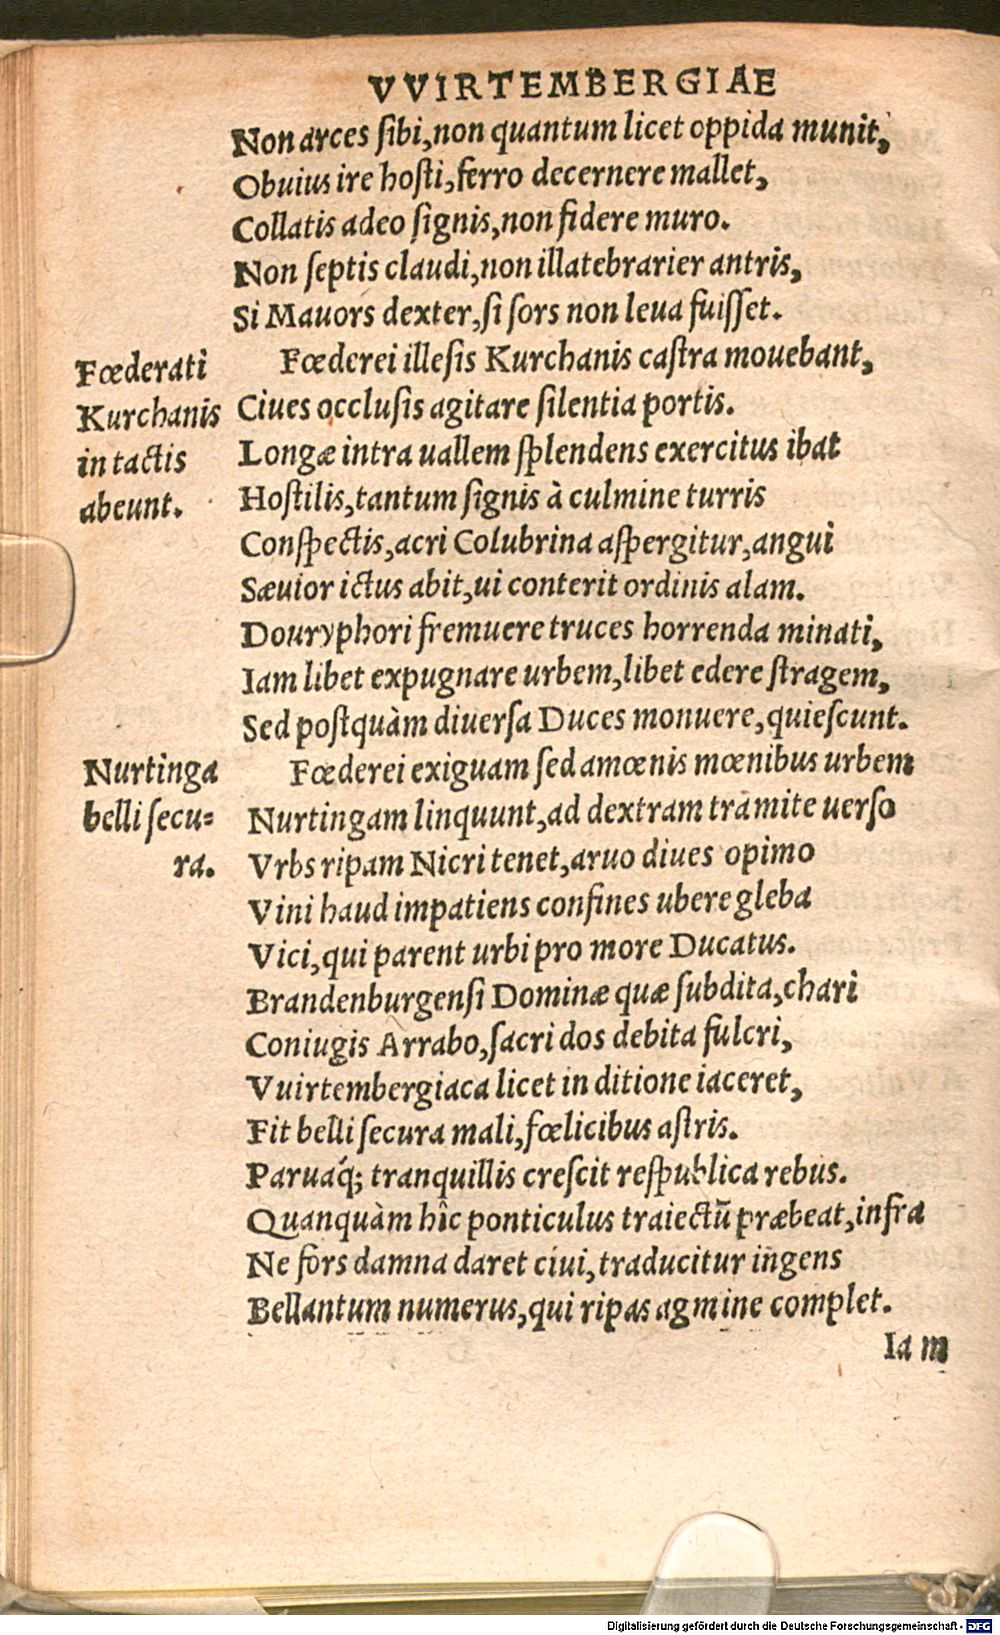 VVIRTEMBERGIAE
Non arces ſibi,non quantum licet oppida munit,
Obuius ire hoſti,ferro decernere mallet,
Collatis adeo ſignis,non fidere muro.
Non ſeptis claudi,non illatebrarier antris,
Si Mauors dexter,ſi ſors non leua fuiſſet.
Fœderati
Kurchanis
in tactis
abeunt.
Fœderei illeſis Kurchanis caſtra mouebant,
Ciues occluſis agitare ſilentia portis.
Longæ intra uallem ſplendens exercitus ibat
Hoſtilis,tantum ſignis à culmine turris
Conſpectis,acri Colubrina aſpergitur,angui
Sæuior ictus abit,ui conterit ordinis alam.
Douryphori fremuere truces horrenda minati,
Iam libet expugnare urbem,libet edere ſtragem,
Sed poſtquàm diuerſa Duces monuere,quieſcunt.
Nurtinga
belli ſecu-
ra.
Fœderei exiguam ſed amœnis mœnibus urbem
Nurtingam linquunt,ad dextram tramite uerſo
Vrbs ripam Nicri tenet,aruo diues opimo
Vini haud impatiens confines ubere gleba
Vici,qui parent urbi pro more Ducatus.
Brandenburgenſi Dominæ quæ ſubdita,chari
Coniugis Arrabo,ſacri dos debita fulcri,
Vuirtembergiaca licet in ditione iaceret,
Fit belli ſecura mali,fœlicibus aſtris.
Paruaq́; tranquillis creſcit reſpublica rebus.
Quanquàm hîc ponticulus traiectū præbeat,infra
Ne fors damna daret ciui,traducitur ingens
Bellantum numerus,qui ripas agmine complet.
Iam
Digitalisierung gefördert durch die Deutsche Forschungsgemeinschaft - DFG